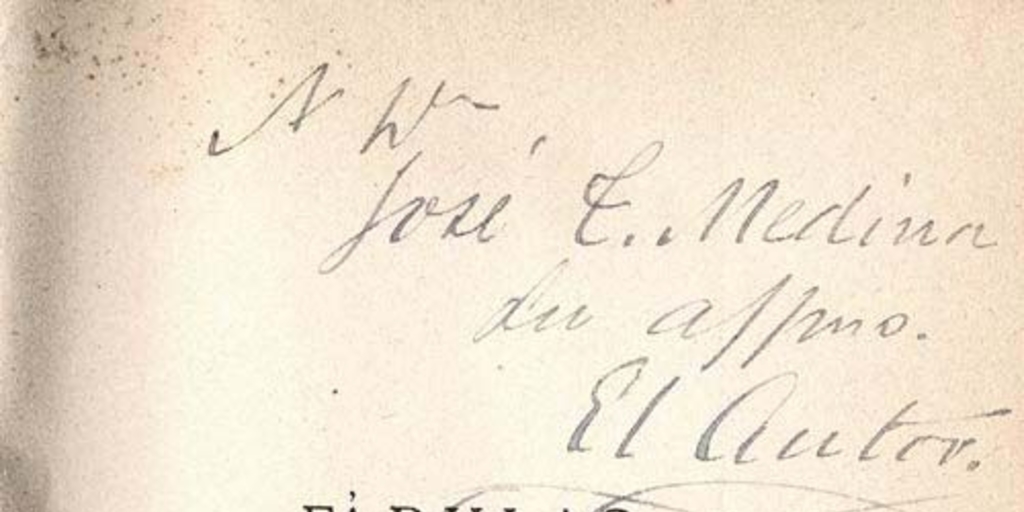 A Dn,
José T. Medina
Su affmo.
El Autor.
FÁBULAS